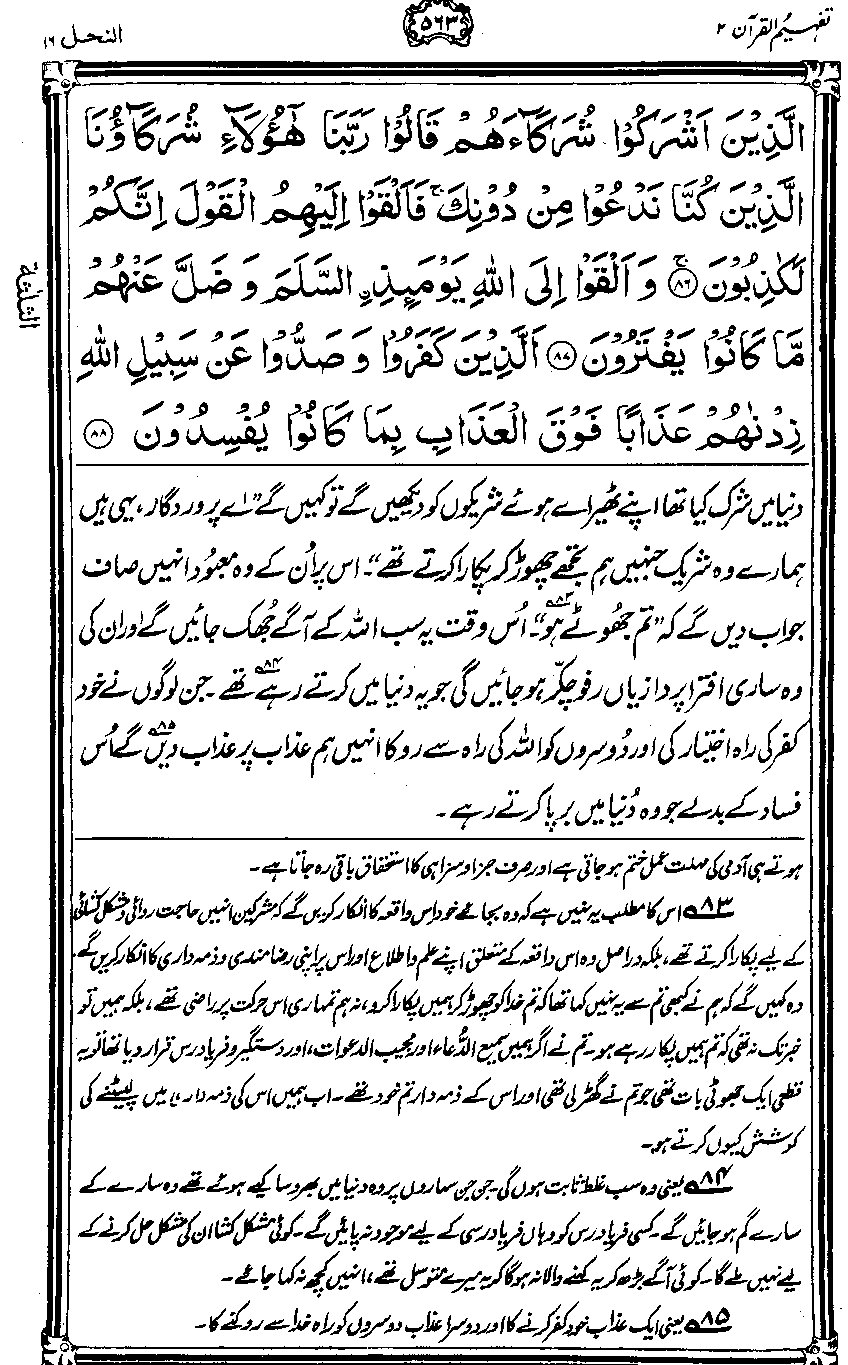 تفہیم القرآن ۲
۵۶۳
النحل ۱۶
الَّذِيْنَ اَشْرَكُوْا شُرَكَآءَهُمْ قَالُوْا رَبَّنَا هٰٓؤُلَآءِ شُرَكَآؤُنَا
الَّذِيْنَ كُنَّا نَدْعُوْا مِنْ دُوْنِكَ ۚ فَاَلْقَوْا اِلَيْهِمُ الْقَوْلَ اِنَّكُمْ
لَكٰذِبُوْنَ ۚ ﴿۸۶﴾ وَ اَلْقَوْا اِلَى اللّٰهِ يَوْمَىِٕذِ ِۨ السَّلَمَ وَ ضَلَّ عَنْهُمْ
مَّا كَانُوْا يَفْتَرُوْنَ ﴿۸۷﴾ اَلَّذِيْنَ كَفَرُوْا وَ صَدُّوْا عَنْ سَبِيْلِ اللّٰهِ
زِدْنٰهُمْ عَذَابًا فَوْقَ الْعَذَابِ بِمَا كَانُوْا يُفْسِدُوْنَ ﴿۸۸﴾
الثلٰثة
دنیا میں شرک کیا تھا اپنے ٹھیرائے ہوئے شریکوں کو دیکھیں گے تو کہیں گے ”اے پروردگار، یہی ہیں
ہمارے وہ شریک جنہیں ہم تجھے چھوڑ کر پکارا کرتے تھے“۔ اس پر اُن کے وہ معبُود انہیں صاف
جواب دیں گے کہ ”تم جھُوٹے ہو“۔۸۳ اُس وقت یہ سب اللہ کے آگے جُھک جائیں گے اور ان کی
وہ ساری افترا پردازیاں رفو چکّر ہو جائیں گی جو یہ دنیا میں کرتے رہے تھے۔۸۴ جن لوگوں نے خود
کفر کی راہ اختیار کی اور دُوسروں کو اللہ کی راہ سے روکا انہیں ہم عذاب پر عذاب دیں گے۸۵ اُس
فساد کے بدلے جو وہ دُنیا میں برپا کرتے رہے۔
ہوتے ہی آدمی کی مہلت عمل ختم ہو جاتی ہے اور صرف جزا و سزا ہی کا استحقاق باقی رہ جاتا ہے۔
۸۳ اس کا مطلب یہ نہیں ہے کہ وہ بجائے خود اس واقعہ کا انکار کریں گے کہ مشرکین انہیں حاجت روائی و مشکل کشائی
کے لیے پکارا کرتے تھے، بلکہ دراصل وہ اس واقعہ کے متعلق اپنے علم و اطلاع اور اس پر اپنی رضامندی و ذمہ داری کا انکار کریں گے۔
وہ کہیں گے کہ ہم نے کبھی تم سے یہ نہیں کہا تھا کہ تم خدا کو چھوڑ کر ہمیں پکارا کرو، نہ ہم تمہاری اس حرکت پر راضی تھے، بلکہ ہمیں تو
خبر تک نہ تھی کہ تم ہمیں پکار رہے ہو۔ تم نے اگر ہمیں سمیع الدُّعاء اور مجیب الدعوات، اور دستگیر و فریاد رس قرار دیا تھا تو یہ
قطعی ایک جھوٹی بات تھی جو تم نے گھڑ لی تھی اور اس کے ذمہ دار تم خود تھے۔ اب ہمیں اس کی ذمہ داری میں لپیٹنے کی
کوشش کیوں کرتے ہو۔
۸۴ یعنی وہ سب غلط ثابت ہوں گی۔ جن جن سہاروں پر وہ دنیا میں بھروسا کیے ہوئے تھے وہ سارے کے
سارے گم ہو جائیں گے۔ کسی فریاد رس کو وہاں فریاد رسی کے لیے موجود نہ پائیں گے۔ کوئی مشکل کشا ان کی مشکل حل کرنے کے
لیے نہیں ملے گا۔ کوئی آگے بڑھ کر یہ کہنے والا نہ ہوگا کہ یہ میرے متوسل تھے، انہیں کچھ نہ کہا جائے۔
۸۵ یعنی ایک عذاب خود کفر کرنے کا اور دوسرا عذاب دوسروں کو راہ خدا سے روکنے کا۔